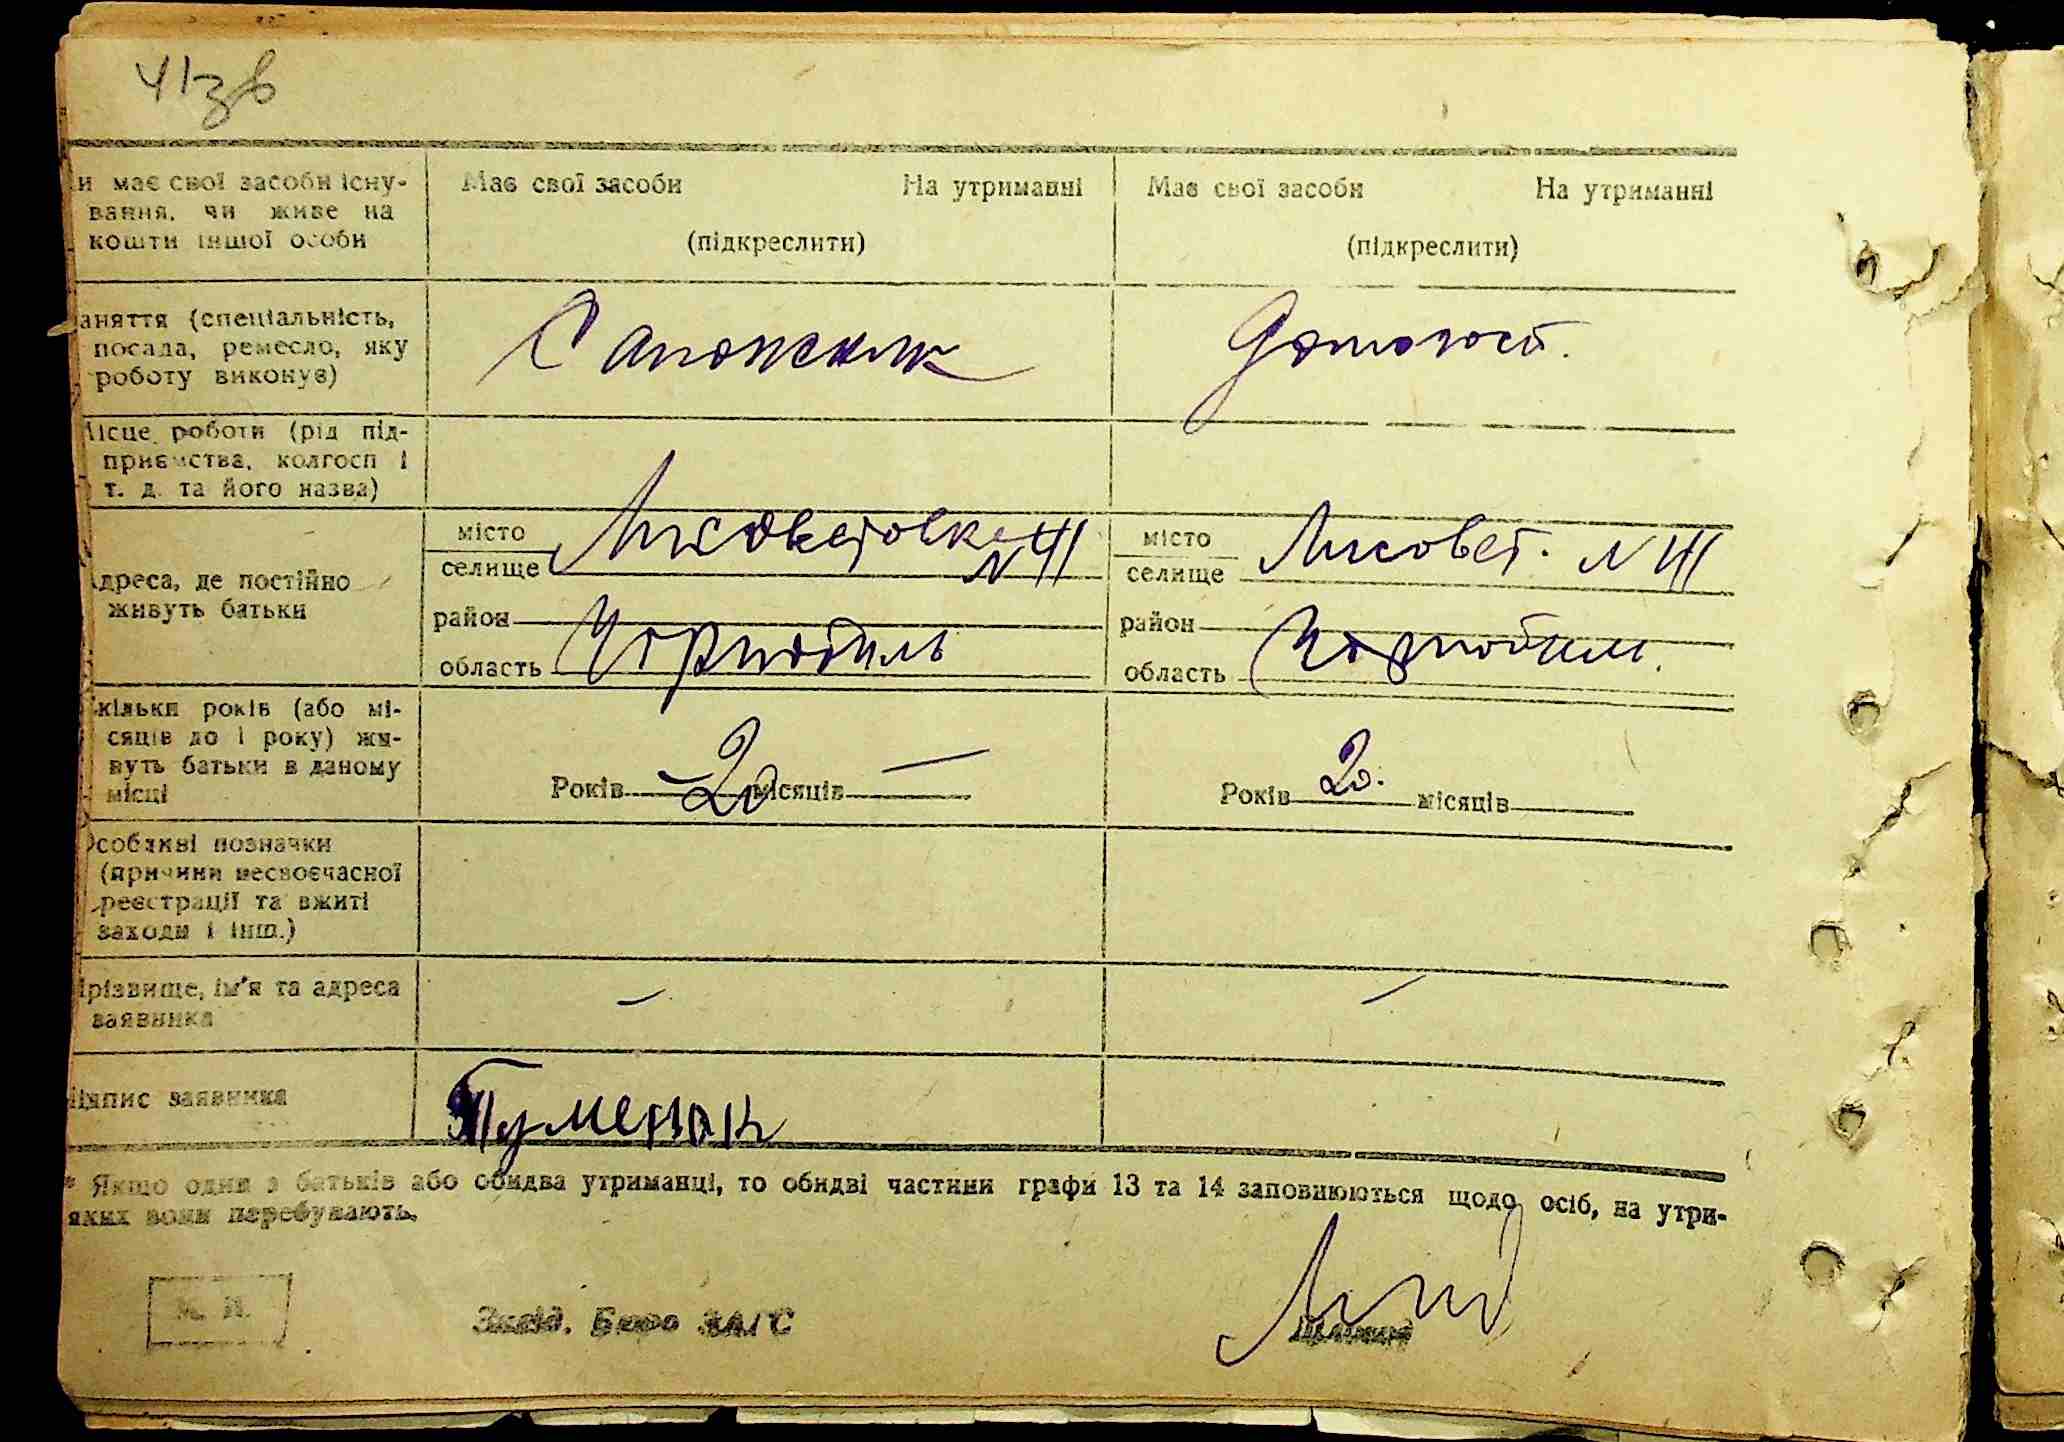 41зв
и має свої засоби існу-
вання, чи живе на
кошти іншої особи
Має свої засоби На утриманні
(підкреслити)
Має свої засоби На утриманні
(підкреслити)
аняття (спеціальність,
посада, ремесло, яку
роботу виконує)
Сапожник
Домогосп.
ісце роботи (рід під-
приємства, колгосп і
т. д. та його назва)
дреса, де постійно
живуть батьки
місто
селище
район
область Чорнобиль
місто
селище Лисовет. N
район
область Чорнобиль.
кільки років (або мі-
сяців до 1 року) жи-
вуть батьки в даному
місці
Років 20 місяців —
Років 20. місяців
Особливі позначки
(причини несвоєчасної
реєстрації та вжиті
заходи і інш.)
Прізвище, ім'я та адреса
заявника
—
—
Підпис заявника
* Якщо один з батьків або обидва утриманці, то обидві частини графи 13 та 14 заповнюються щодо осіб, на утри-
яких вони перебувають.
М. П.
Завід. Бюро ЗАГС